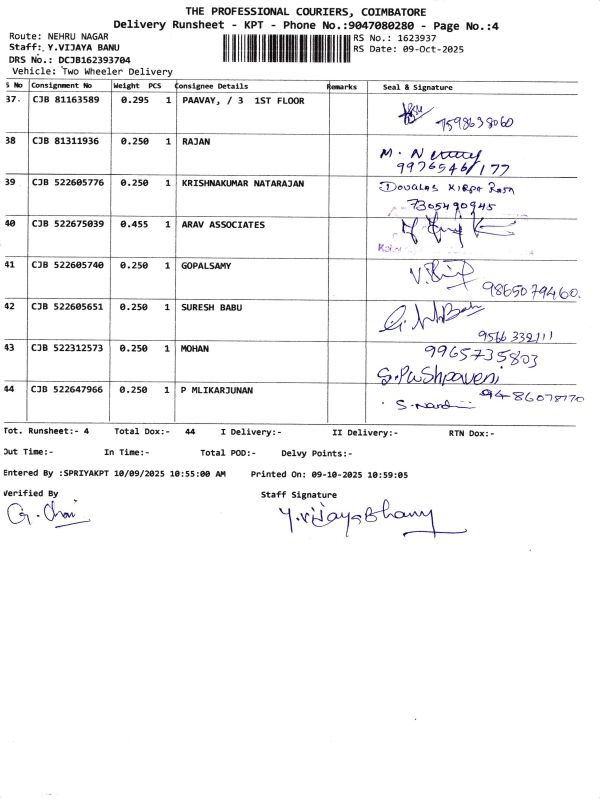 THE PROFESSIONAL COURIERS, COIMBATORE
Delivery Runsheet - KPT - Phone No.:9047080280 - Page No.:4
Route: NEHRU NAGAR RS No.: 1623937
Staff: Y.VIJAYA BANU RS Date: 09-Oct-2025
DRS No.: DCJB162393704
Vehicle: Two Wheeler Delivery
S No Consignment No Weight PCS Consignee Details Remarks Seal & Signature
37. CJB 81163589 0.295 1 PAAVAY, / 3 1ST FLOOR
7598638060
38 CJB 81311936 0.250 1 RAJAN
M.
9976546177
39 CJB 522605776 0.250 1 KRISHNAKUMAR NATARAJAN DOUGLAS KIRPA RAJA
7305490945
40 CJB 522675039 0.455 1 ARAV ASSOCIATES
41 CJB 522605740 0.250 1 GOPALSAMY
9865079460.
42 CJB 522605651 0.250 1 SURESH BABU
9566332111
43 CJB 522312573 0.250 1 MOHAN 9965735803
S.Pushpaveni
44 CJB 522647966 0.250 1 P MLIKARJUNAN
Tot. Runsheet:- 4 Total Dox:- 44 I Delivery:- II Delivery:- RTN Dox:-
Out Time:- In Time:- Total POD:- Delvy Points:-
Entered By :SPRIYAKPT 10/09/2025 10:55:00 AM Printed On: 09-10-2025 10:59:05
Verified By Staff Signature
Y.Vijaya Bhanu